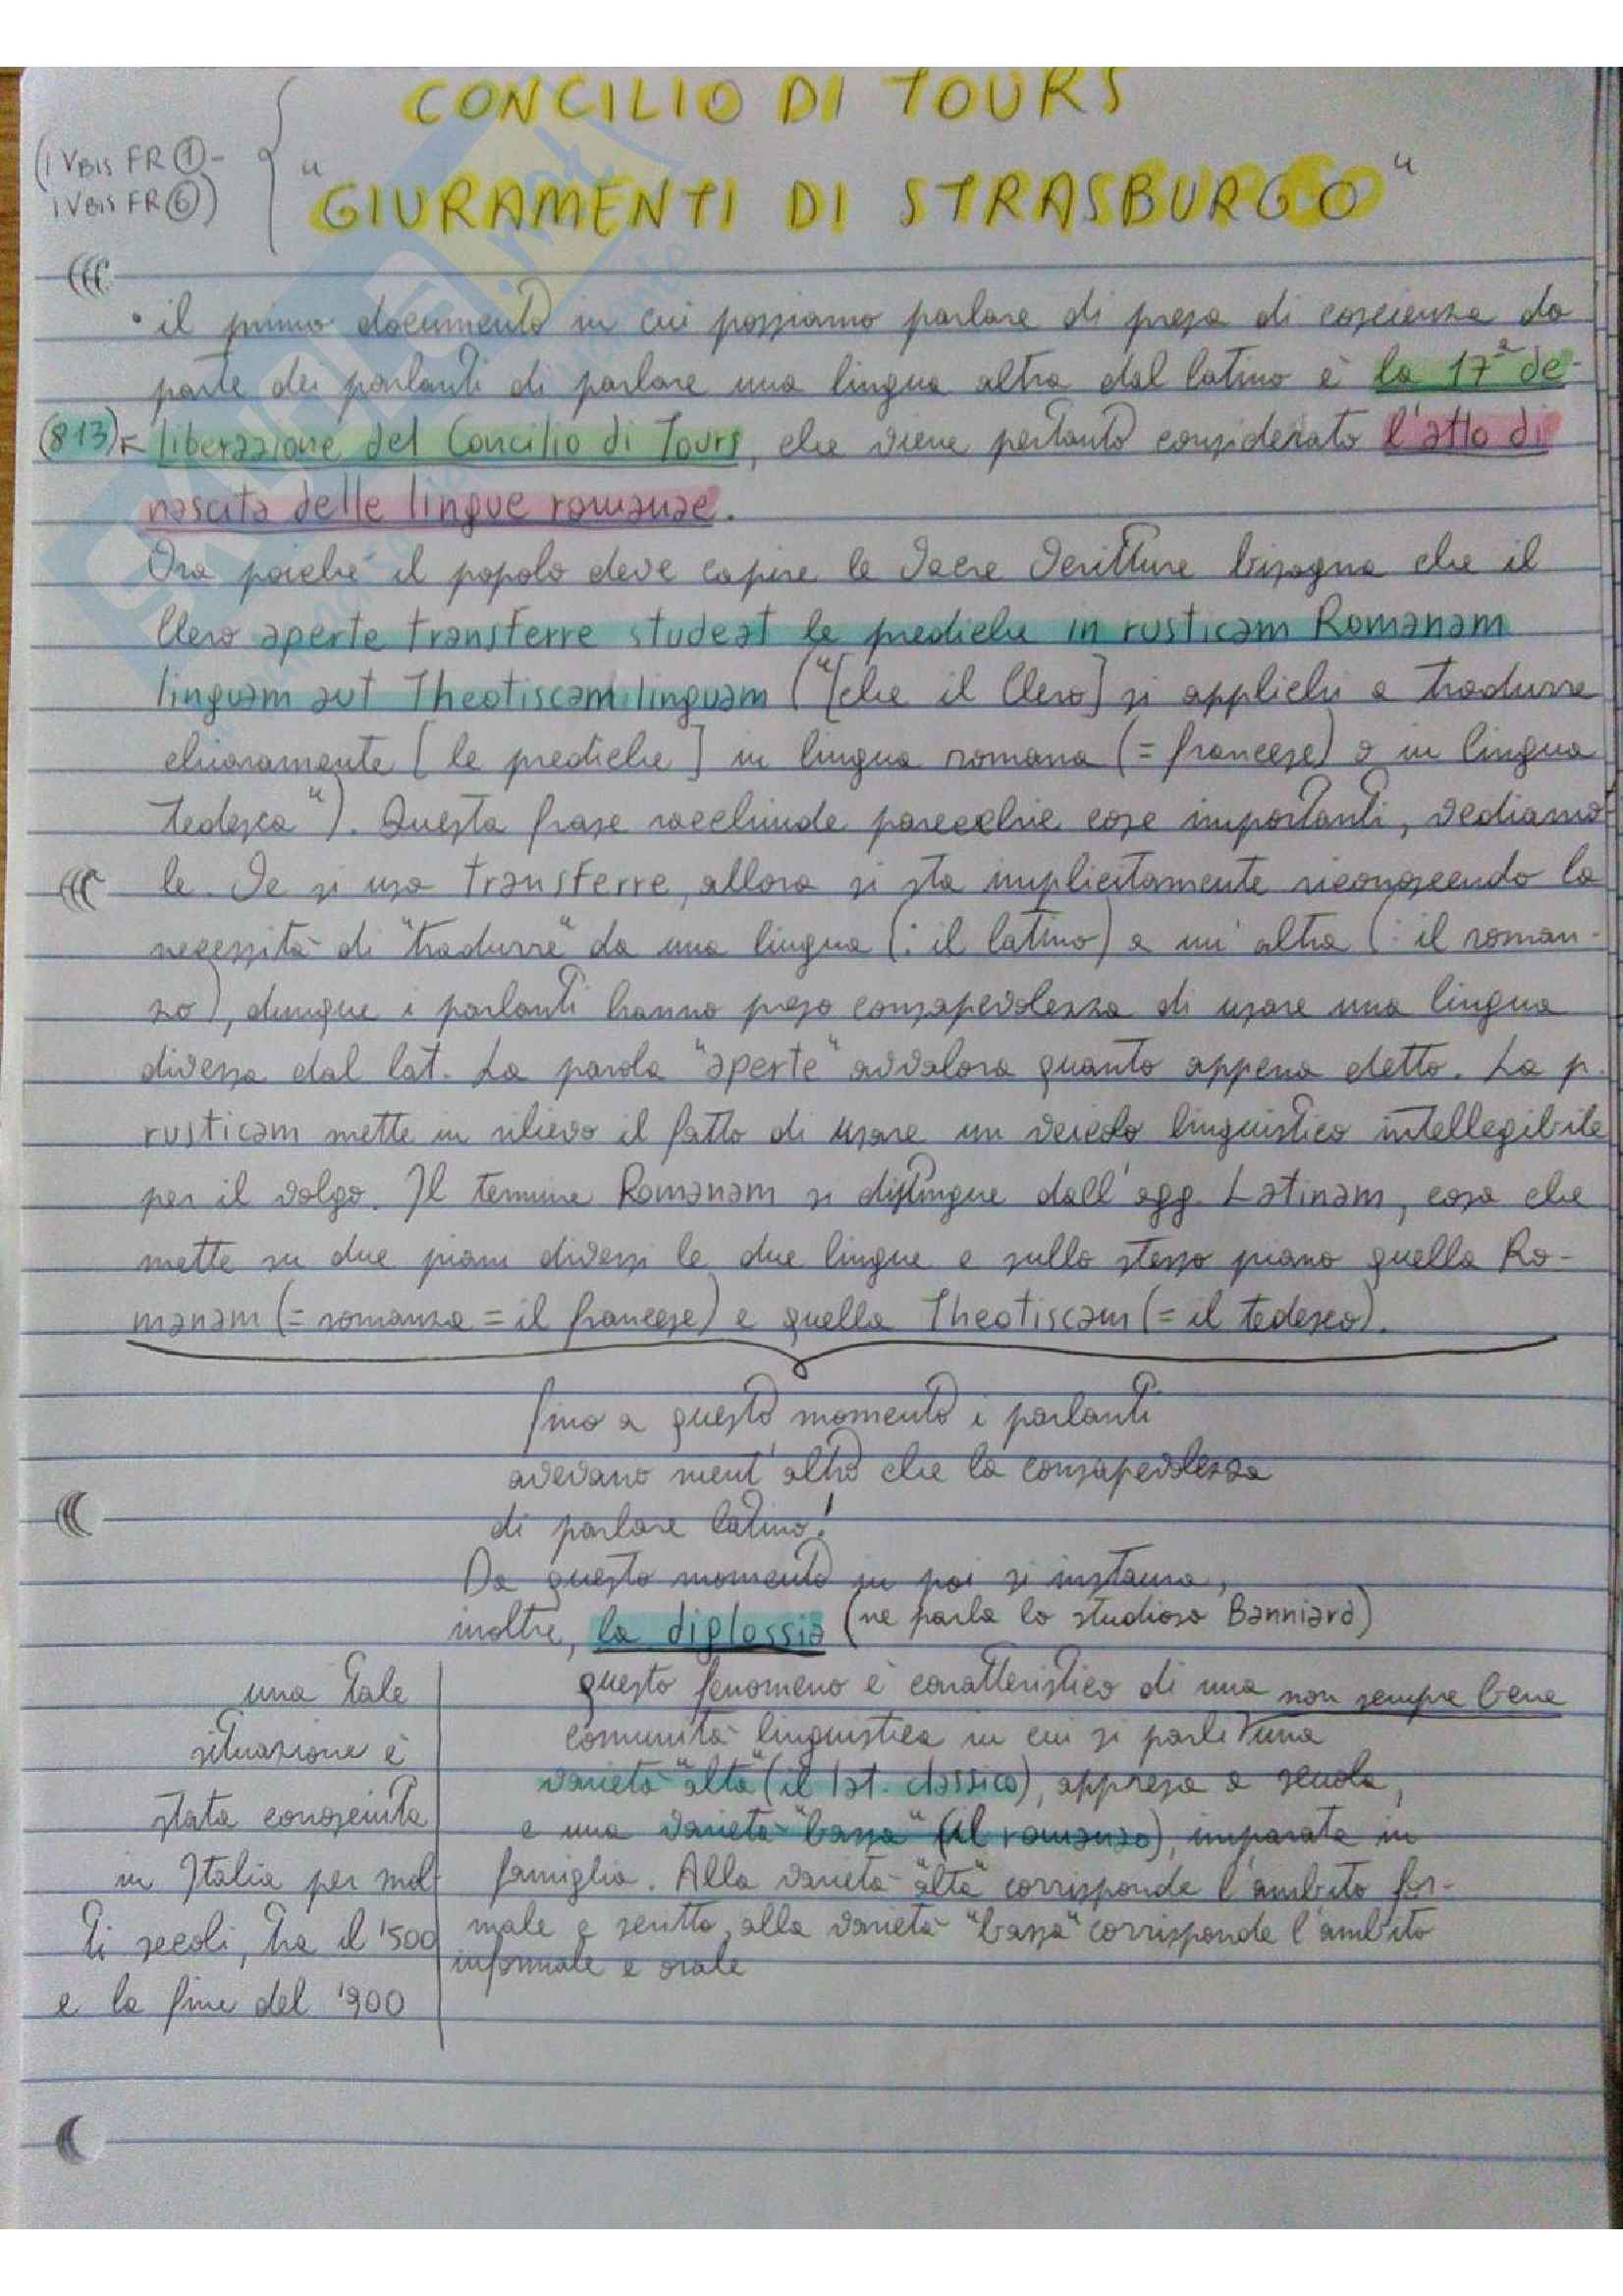 CONCILIO DI TOURS
(IVBIS FR ① -
IVBIS FR ⑥)
"GIURAMENTI DI STRASBURGO"
• il primo documento in cui possiamo parlare di presa di coscienza da
parte dei parlanti di parlare una lingua altra dal latino è la 17ª de-
(813) liberazione del Concilio di Tours, che viene pertanto considerato l'atto di
nascita delle lingue romanze.
Ora poiché il popolo deve capire le Sacre Scritture bisogna che il
Clero aperte transferre studeat le prediche in rusticam Romanam
linguam aut Theotiscam linguam ("[che il Clero] si applichi a tradurre
chiaramente [le prediche] in lingua romana (= francese) o in lingua
tedesca"). Questa frase racchiude parecchie cose importanti, vediamo-
le. Se si usa transferre, allora si sta implicitamente riconoscendo la
necessità di "tradurre" da una lingua (: il latino) a un'altra (: il roman-
zo), dunque i parlanti hanno preso consapevolezza di usare una lingua
diversa dal lat. La parola "aperte" avvalora quanto appena detto. La p.
rusticam mette in rilievo il fatto di usare un veicolo linguistico intellegibile
per il volgo. Il termine Romanam si distingue dall'agg. Latinam, cosa che
mette su due piani diversi le due lingue e sullo stesso piano quella Ro-
manam (= romanza = il francese) e quella Theotiscam (= il tedesco).
fino a questo momento i parlanti
avevano nient'altro che la consapevolezza
di parlare latino!
Da questo momento in poi si instaura,
inoltre, la diglossia (ne parla lo studioso Banniard)
questo fenomeno è caratteristico di una non sempre bene
comunità linguistica in cui si parli una
varietà "alta" (il lat. classico), appresa a scuola,
e una varietà "bassa" (il romanzo), imparata in
famiglia. Alla varietà "alta" corrisponde l'ambito for-
male e scritto, alla varietà "bassa" corrisponde l'ambito
informale e orale
una tale
situazione è
stata conosciuta
in Italia per mol-
ti secoli, tra il '500
e la fine del '900